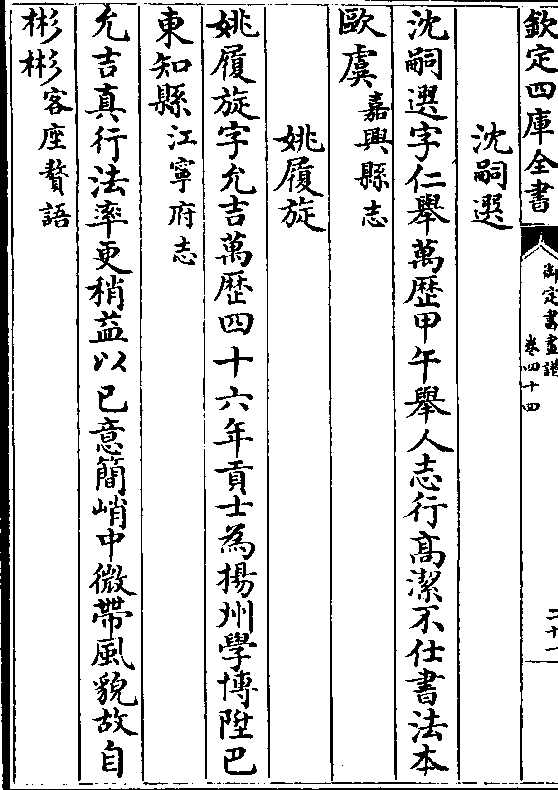 欽定四庫全書
御定書畫譜
卷四十四
沈嗣選
沈嗣選字仁舉萬歷甲午舉人志行高潔不仕書法本
歐虞嘉興縣志
姚履旋
姚履旋字允吉萬歷四十六年貢士為揚州學博陞巴
東知縣江寧府志
允吉真行法率更稍益以已意簡峭中微帶風貌故自
彬彬客座贅語